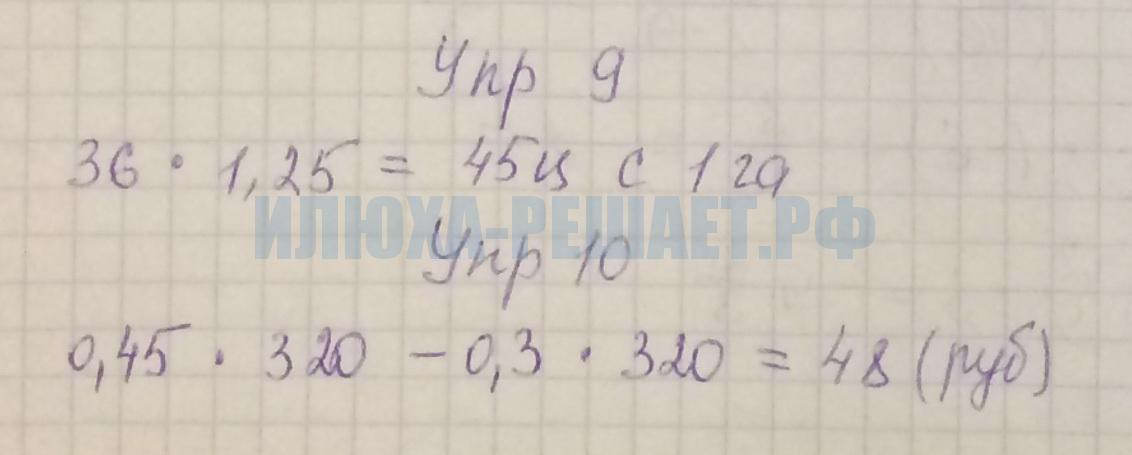 Упр 9
36 · 1,25 = 45ц с 1 га
ИЛЮХА-РЕШАЕТ.РФ
Упр 10
0,45 · 320 - 0,3 · 320 = 48 (руб)